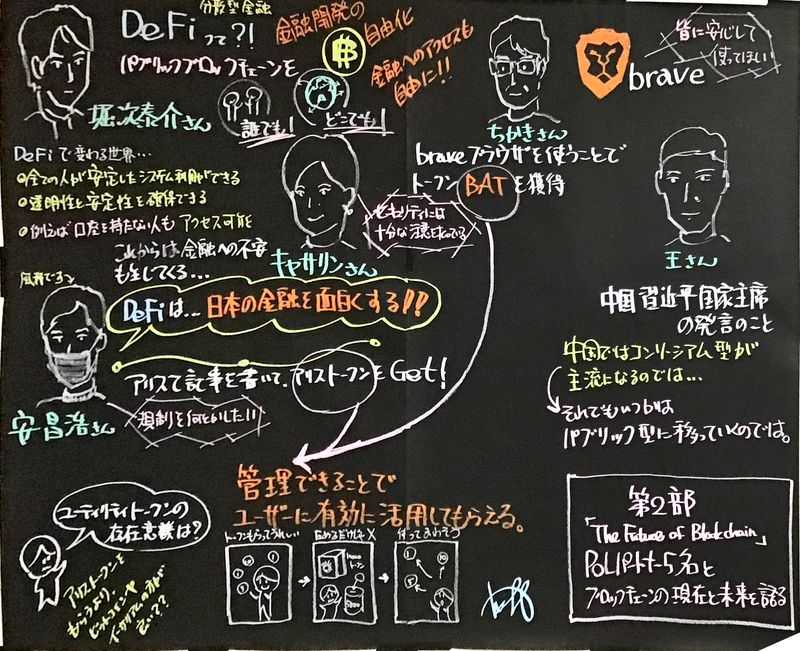 分散型金融
DeFiって?!
パブリックブロックチェーンを
誰でも!
どこでも!
金融開発の
自由化
金融へのアクセスも
自由に!!
堀次泰介さん
DeFiで変わる世界…
●全ての人が安定したシステム利用ができる
●透明性と安定性を確保できる
●例えば口座を持たない人もアクセス可能
これからは金融への不安
も生じてくる…
キャサリンさん
セキュリティには
DeFiは…日本の金融を面白くする!!
アリスで記事を書いて、アリストークンをGet!
安昌浩さん
規制を何とかしたい!!
ちかきさん
braveブラウザを使うことで
トークンBATを獲得
brave
皆に安心して
使ってほしい
王さん
中国習近平国家主席
の発言のこと
中国ではコンソーシアム型が
主流になるのでは…
それでもいつかは
パブリック型に移っていくのでは。
管理できることで
ユーザーに有効に活用してもらえる。
トークンもらってうれしい
ためるだけじゃ×
使ってあげよう
ユーティリティトークンの
存在意義は?
アリストークンを
もらうより
ビットコインや
イーサリアムの方が
良いって?
第2部
「The Future of Blockchain」
POLパートナー5名と
ブロックチェーンの現在と未来を語る